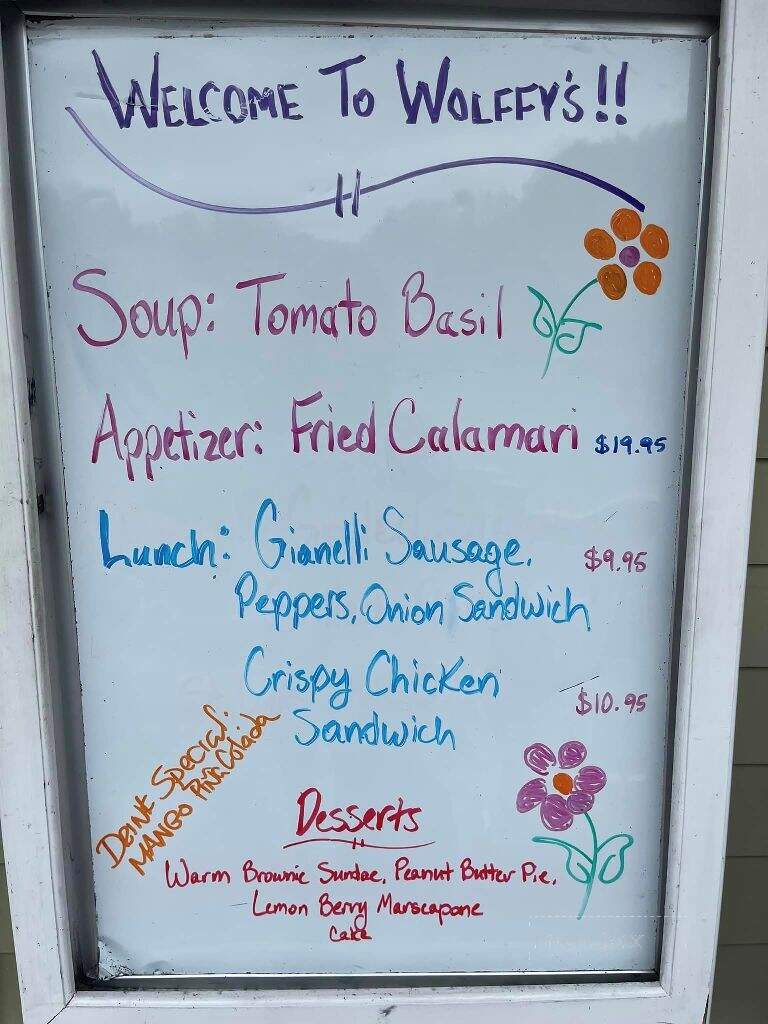 WELCOME TO WOLFFY'S!!
Soup: Tomato Basil
Appetizer: Fried Calamari $19.95
Lunch: Gianelli Sausage, $9.95
Peppers, Onion Sandwich
Crispy Chicken
Sandwich $10.95
DRINK SPECIAL:
MANGO PINA Colada
Desserts
Warm Brownie Sundae, Peanut Butter Pie,
Lemon Berry Marscapone
Cake